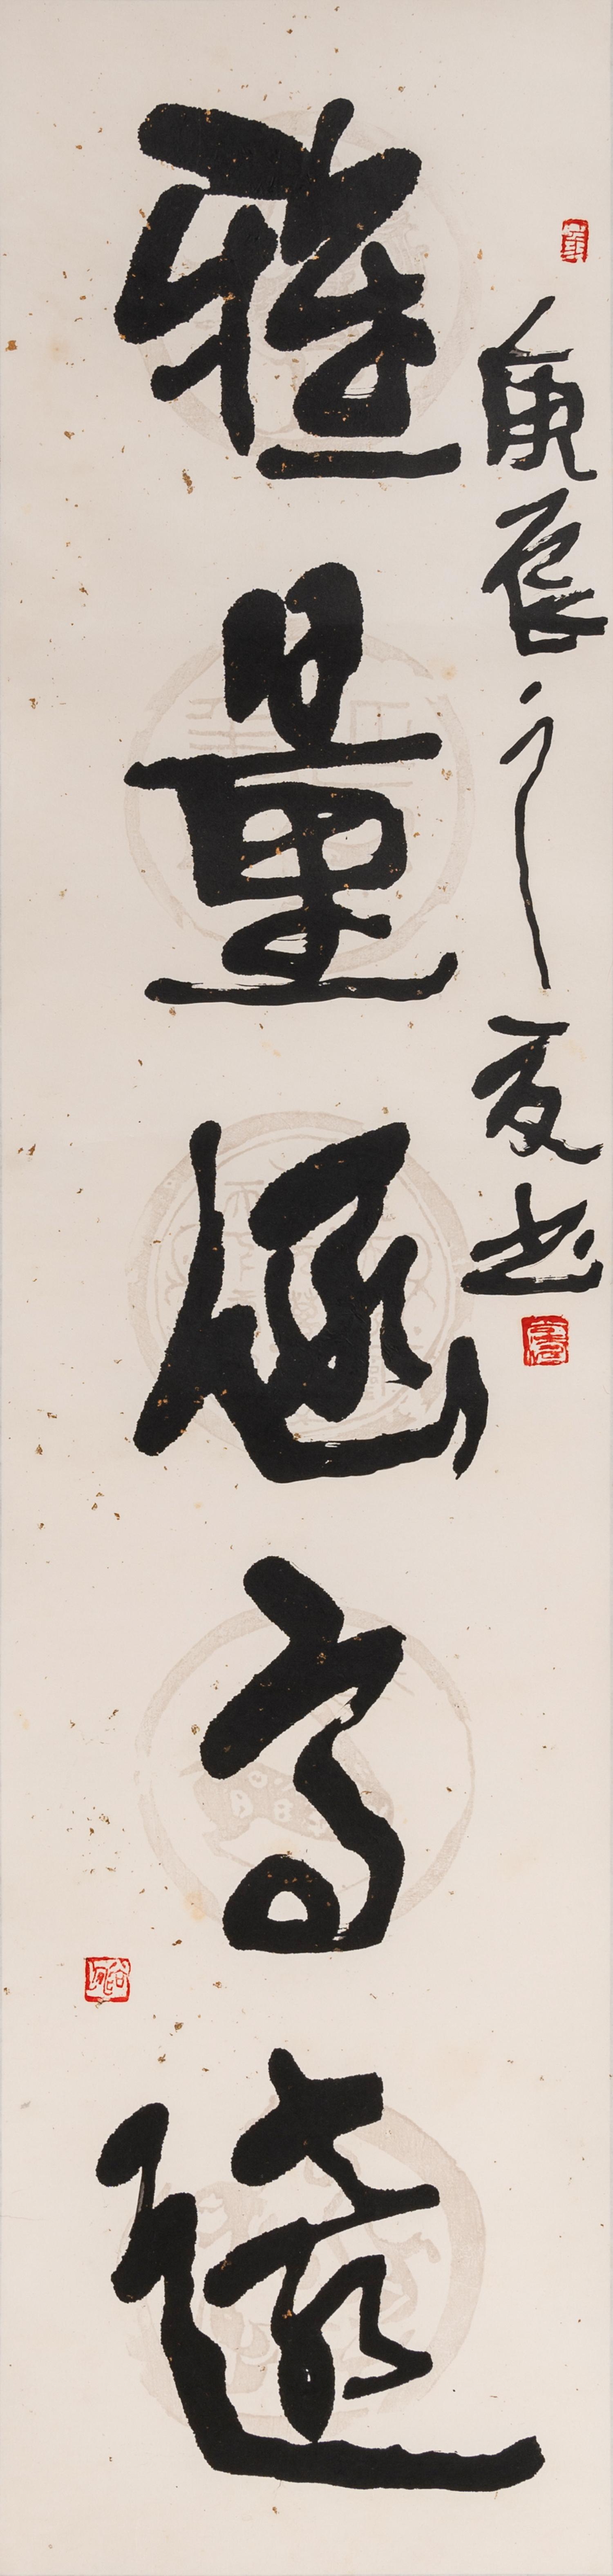 庚辰之夏书
雅量涵高远